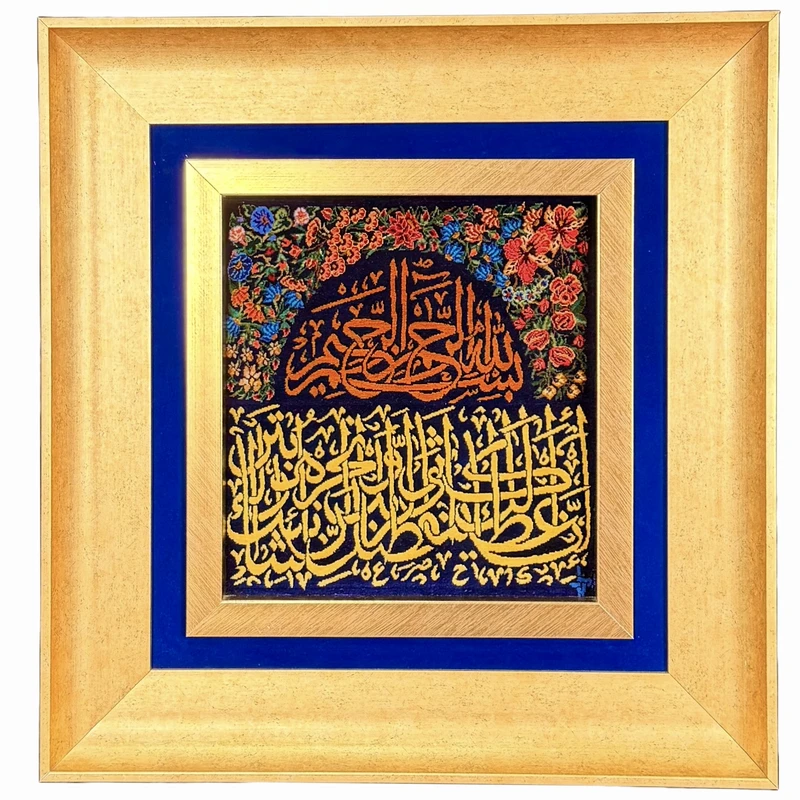 بسم الله الرحمن الرحيم
إنا أعطيناك الكوثر فصل لربك وانحر إن شانئك هو الأبتر